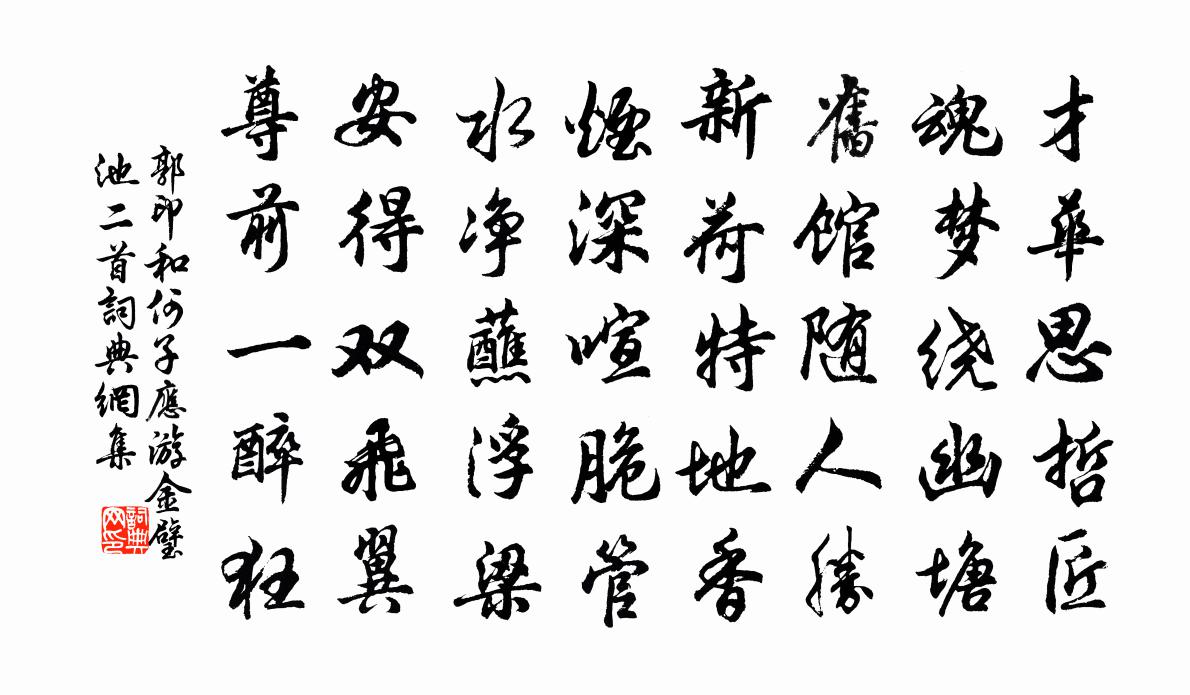 才華思哲匠
魂梦绕幽塘
舊馆随人勝
新荷特地香
煙深喧脆管
水净蘸浮梁
安得双飛翼
尊前一醉狂
郭印和何子應游金壁
池二首詞典網集
詞典网印